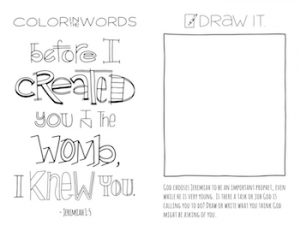 COLOR IN THE WORDS
before I
CREATED
you IN THE
WOMB,
I KNEW YOU.
- JEREMIAH 1:5
DRAW IT.
GOD CHOOSES JEREMIAH TO BE AN IMPORTANT PROPHET, EVEN
WHILE HE IS VERY YOUNG. IS THERE A TASK OR JOB GOD IS
CALLING YOU TO DO? DRAW OR WRITE WHAT YOU THINK GOD
MIGHT BE ASKING OF YOU.